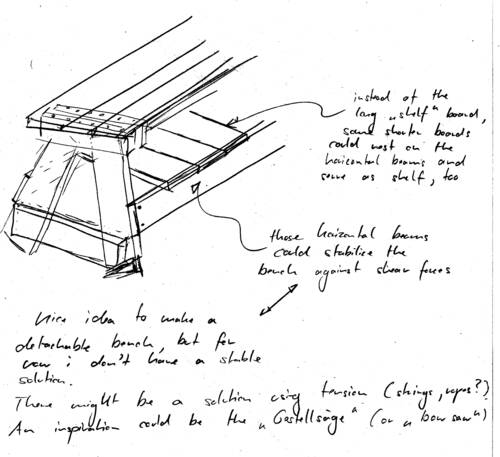 instead of the
long „shelf" board,
some shorter boards
could rest on the
horizontal beams and
serve as shelf, too
those horizontal beams
could stabilize the
bench against shear forces
Nice idea to make a
detachable bench, but for
now i don't have a stable
solution.
There might be a solution using tension (strings, ropes?)
An inspiration could be the „Gestellsäge" (or „bow saw")